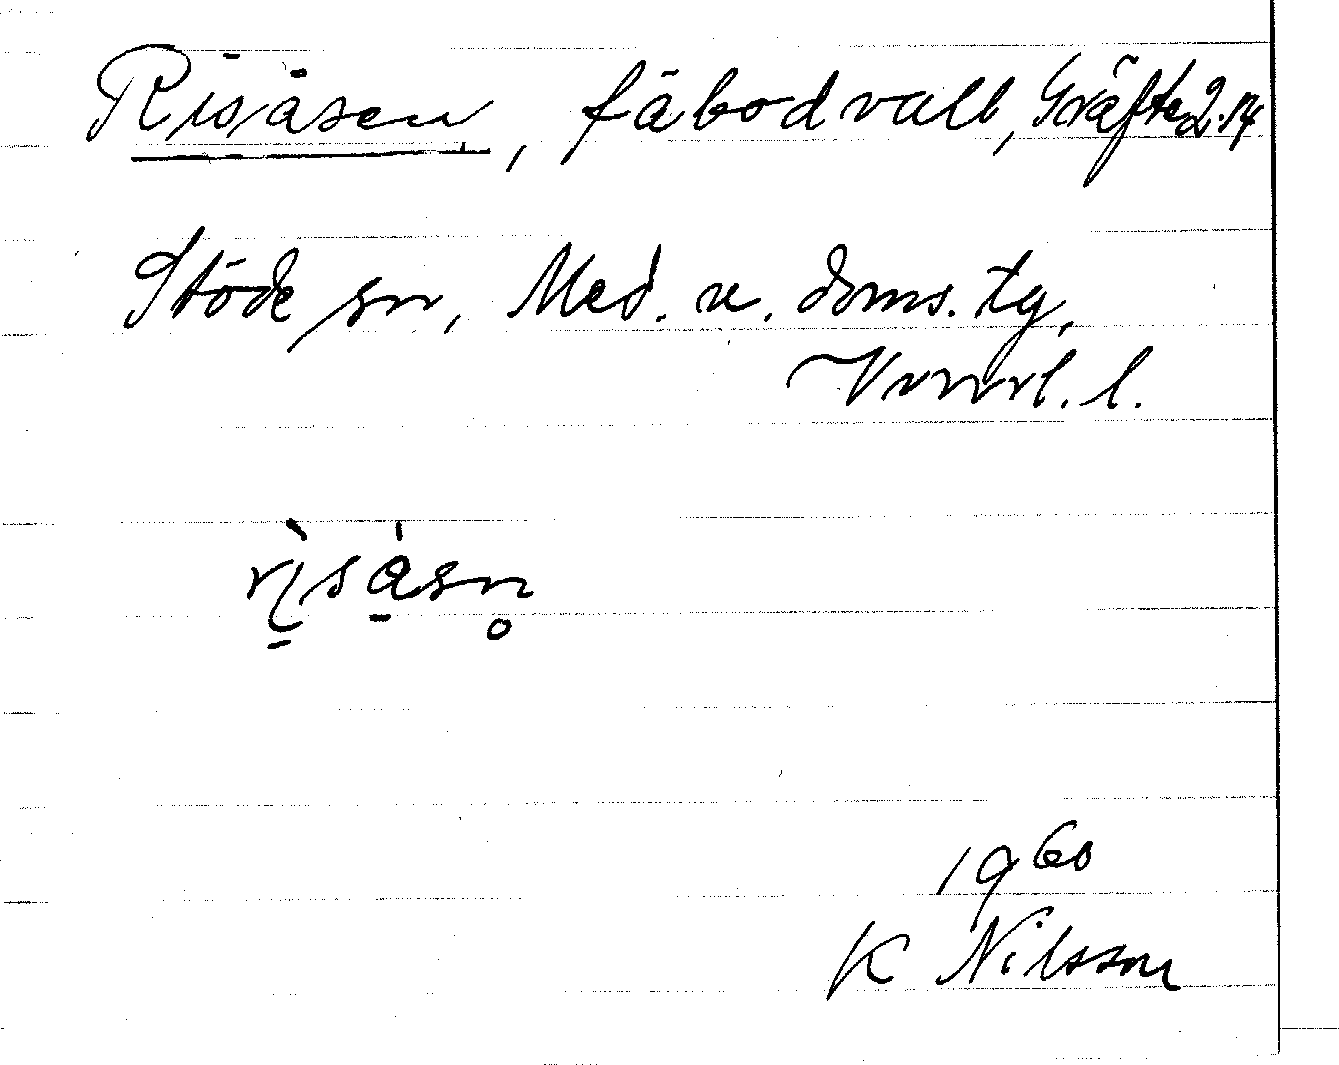 Risåsen, fäbodvall, Gräfte 2.14
Stöde sn, Med. v. doms. tg,
Vnorrl. l.
rı̀såsn̥
1960
K Nilsson